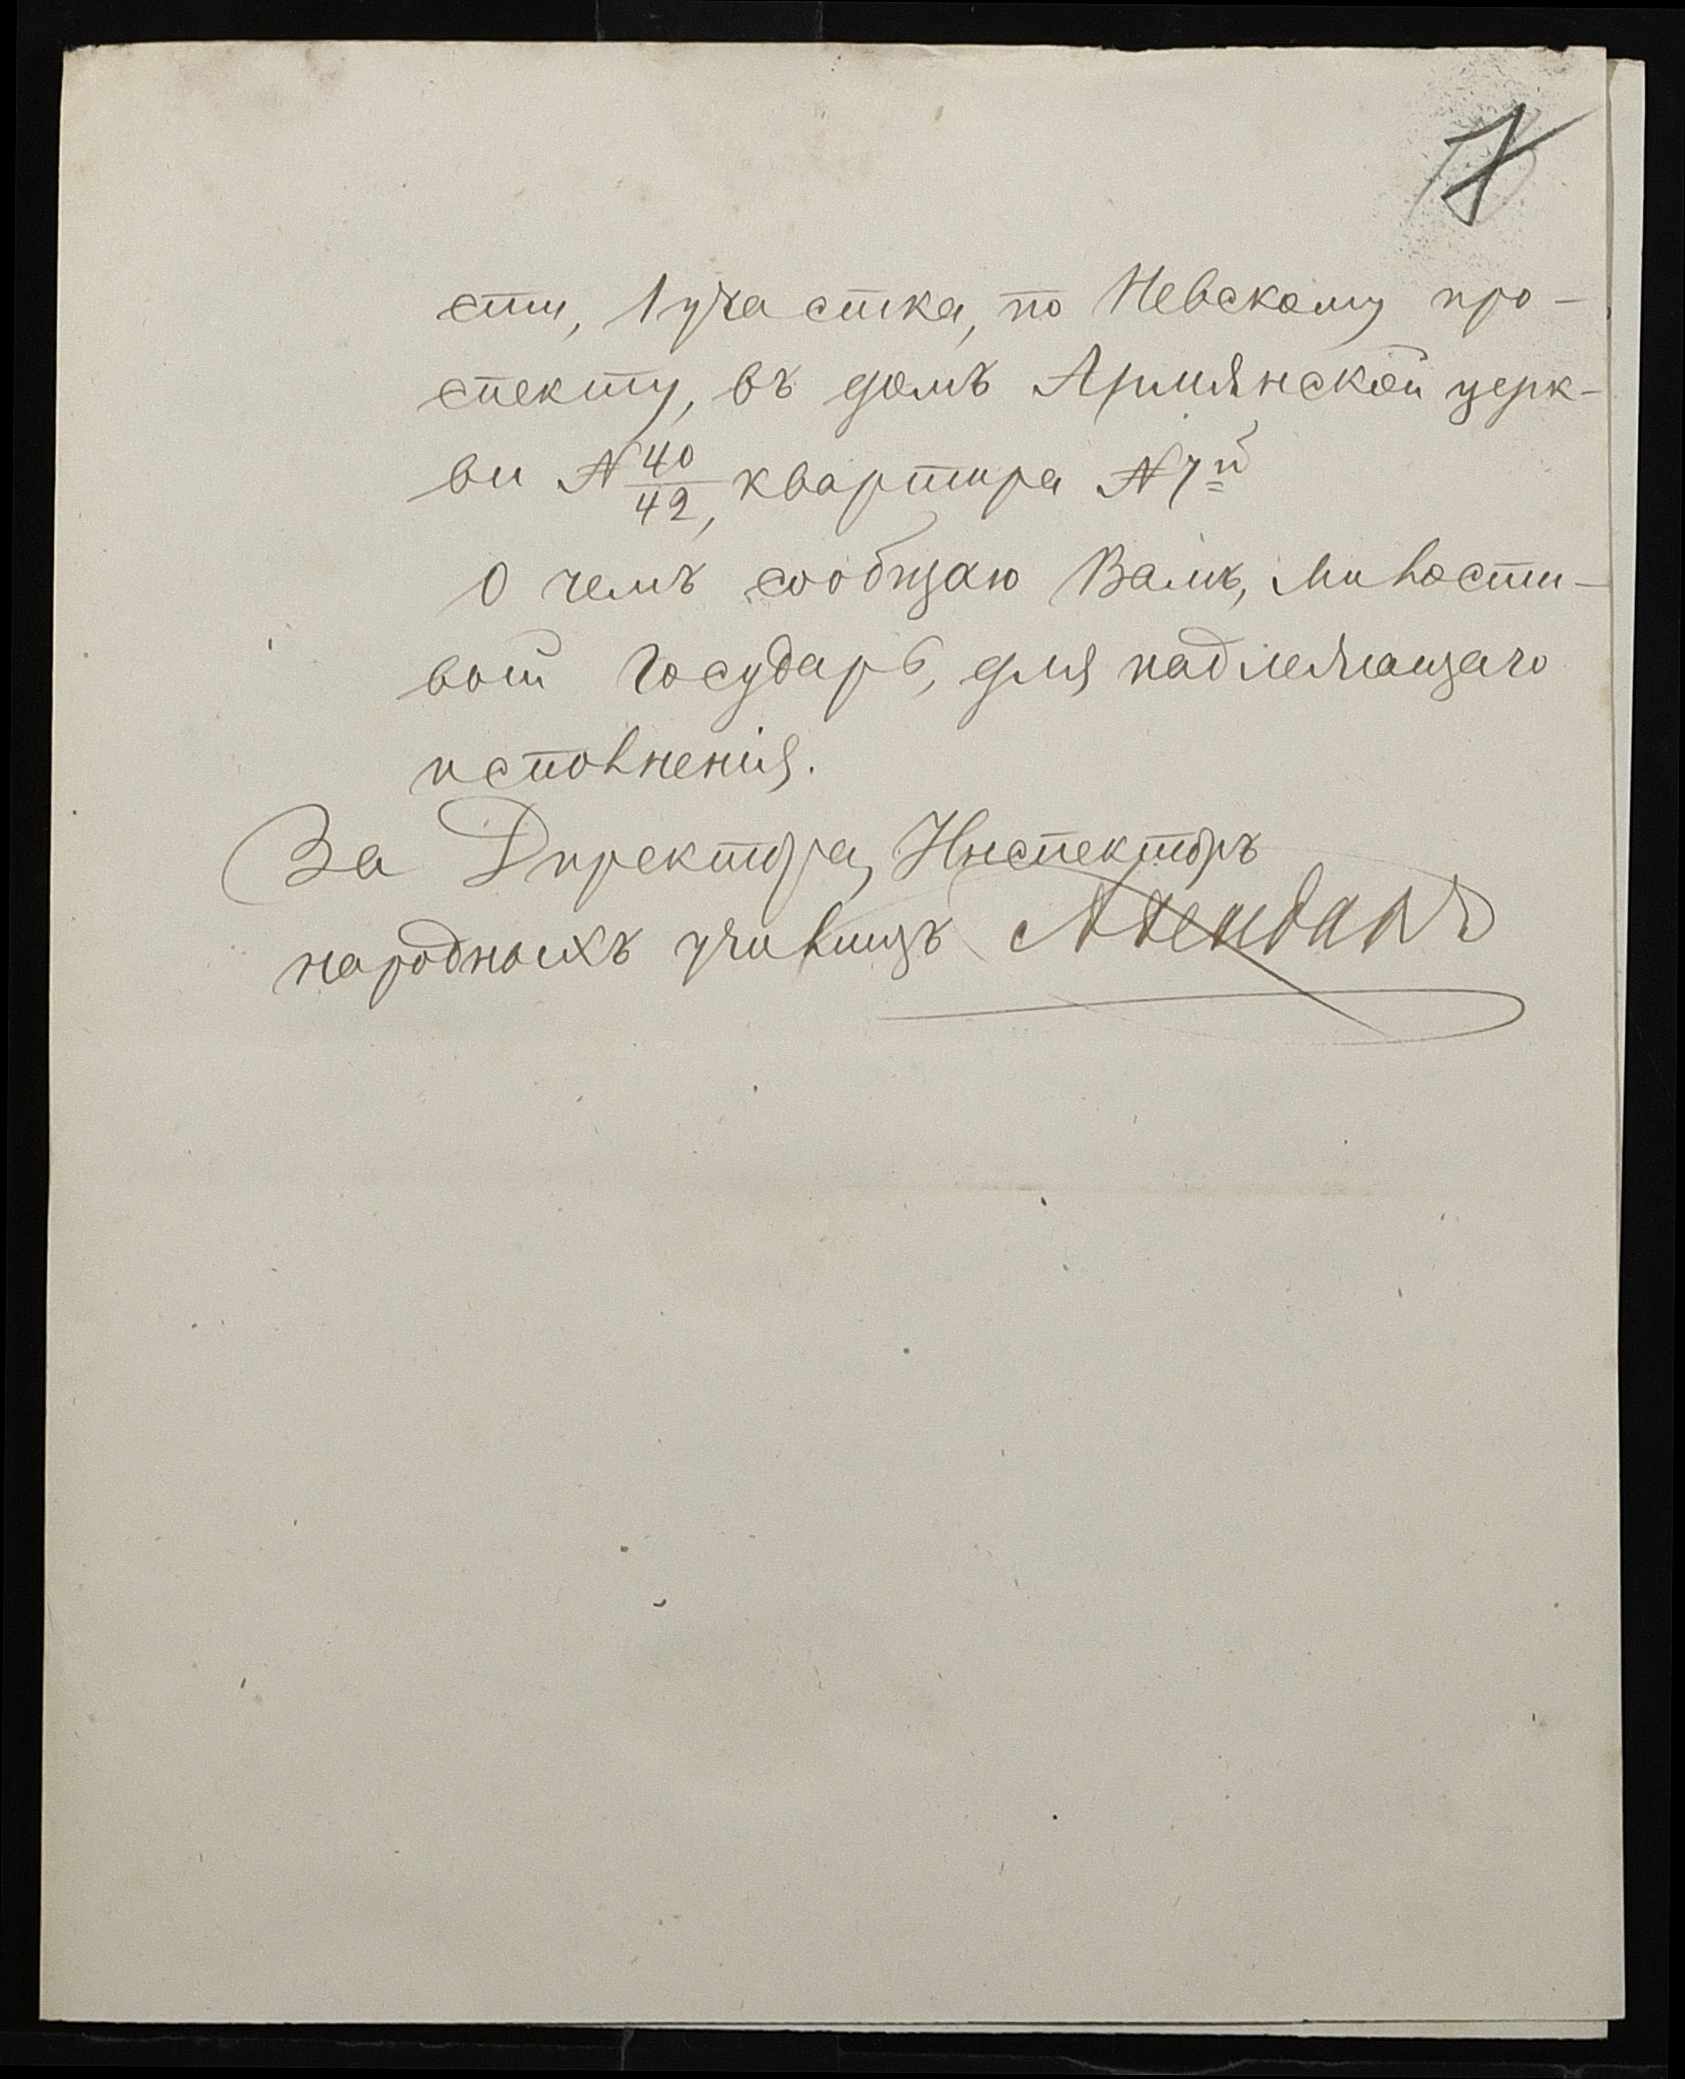 7
сти, 1 участка, по Невскому про-
спекту, въ домъ Армянской церк-
ви № 40/42, квартира № 7й
О чемъ сообщаю Вамъ, Милости-
вый Государь, для надлежащаго
исполненія.
За Директора, Инспекторъ
народныхъ училищъ